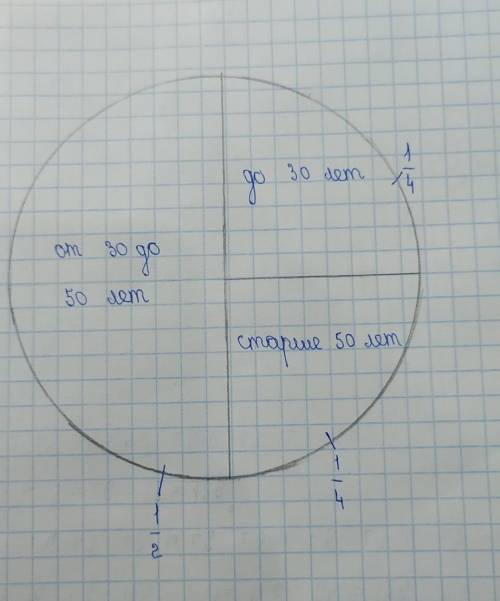 до 30 лет
1/4
от 30 до
50 лет
старше 50 лет
1/4
1/2